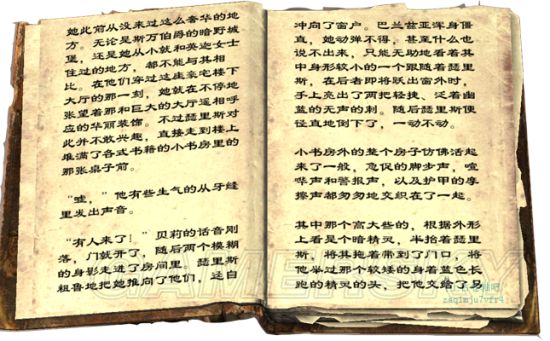 她此前从没来过这么奢华的地
方。无论是斯万伯爵的暗野城
堡，还是她从小就和英迩女士
住过的地方，都不能与其相
比。在他们穿过这座豪宅楼下
大厅的那一刻，她就在不停地
张望着那和巨大的大厅遥相呼
应的华丽装饰。不过瑟里斯对
此并不敢兴趣，直接走到楼上
堆满了各式书籍的小书房里的
那张桌子前。
“嘘，”他有些生气的从牙缝
里发出声音。
“有人来了！”贝莉的话音刚
落，门就开了，随后两个模糊
的身影走进了房间里。瑟里斯
粗鲁地把她推向了他们，还自
冲向了窗户。巴兰兹亚浑身僵
直，她动弹不得，甚至什么也
说不出来，只能无助地看着其
中身形较小的一个跟随着瑟里
斯，在后者即将跃出窗外时，
手上亮出了两把轻捷、泛着幽
蓝的无声的刺。随后瑟里斯便
径直地倒下了，一动不动。
小书房外的整个房子仿佛活起
来了一般，急促的脚步声，喧
哗声和警报声，以及护甲的摩
擦声都匆匆地交织在了一起。
其中那个高大些的，根据外形
上看是个暗精灵，半抬着瑟里
斯，将其拖着带到了门口，将
他举过那个较矮的身着蓝色长
跑的精灵的头，把他交给了另
GAMERSKY
zaqimju7vfr4